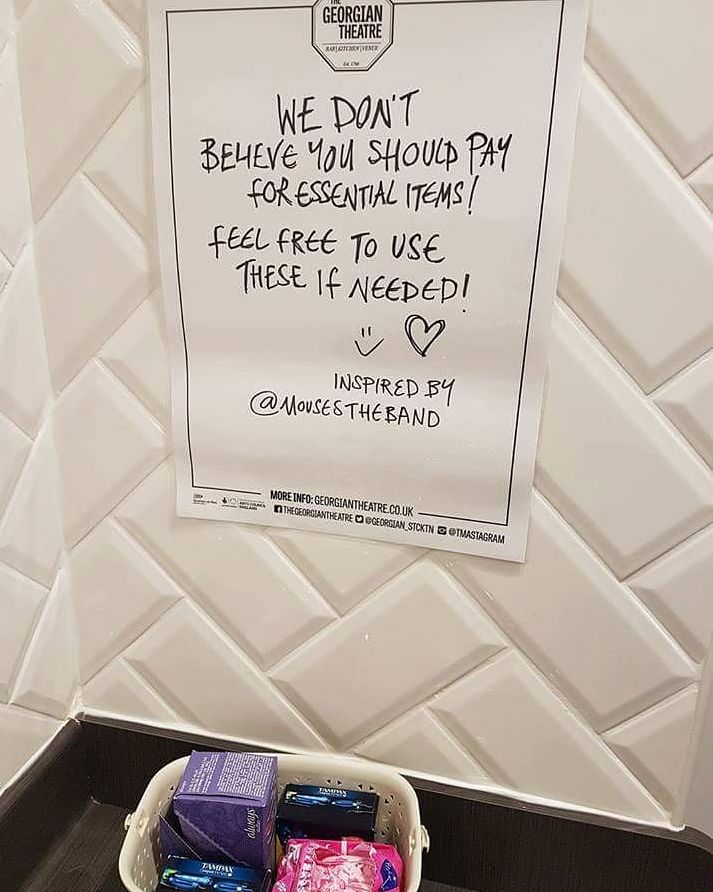 THE
GEORGIAN
THEATRE
BAR|KITCHEN|VENUE
WE DON'T
BELIEVE YOU SHOULD PAY
FOR ESSENTIAL ITEMS!
FEEL FREE TO USE
THESE IF NEEDED!
INSPIRED BY
@MOUSESTHEBAND
MORE INFO: GEORGIANTHEATRE.CO.UK
THEGEORGIANTHEATRE @GEORGIAN_STCKTN @TMASTAGRAM
ARTS COUNCIL
ENGLAND
always
TAMPAX
TAMPAX